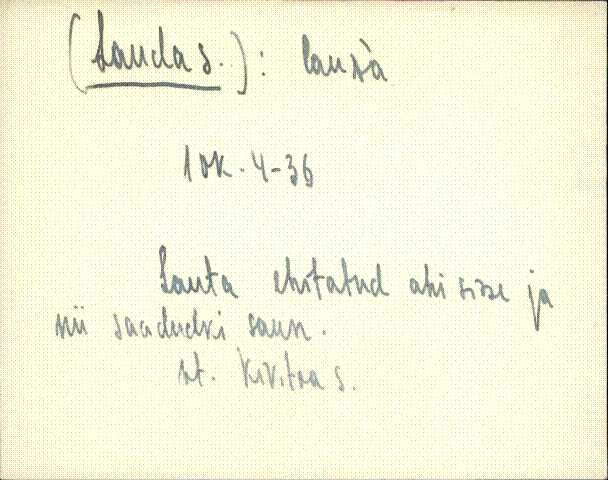 (Lauda s.): lauz̀a
1 vk. 4-36
Lauta ehitatud ahi sisse ja
nii saadudki saun.
vt. Kikitaa s.